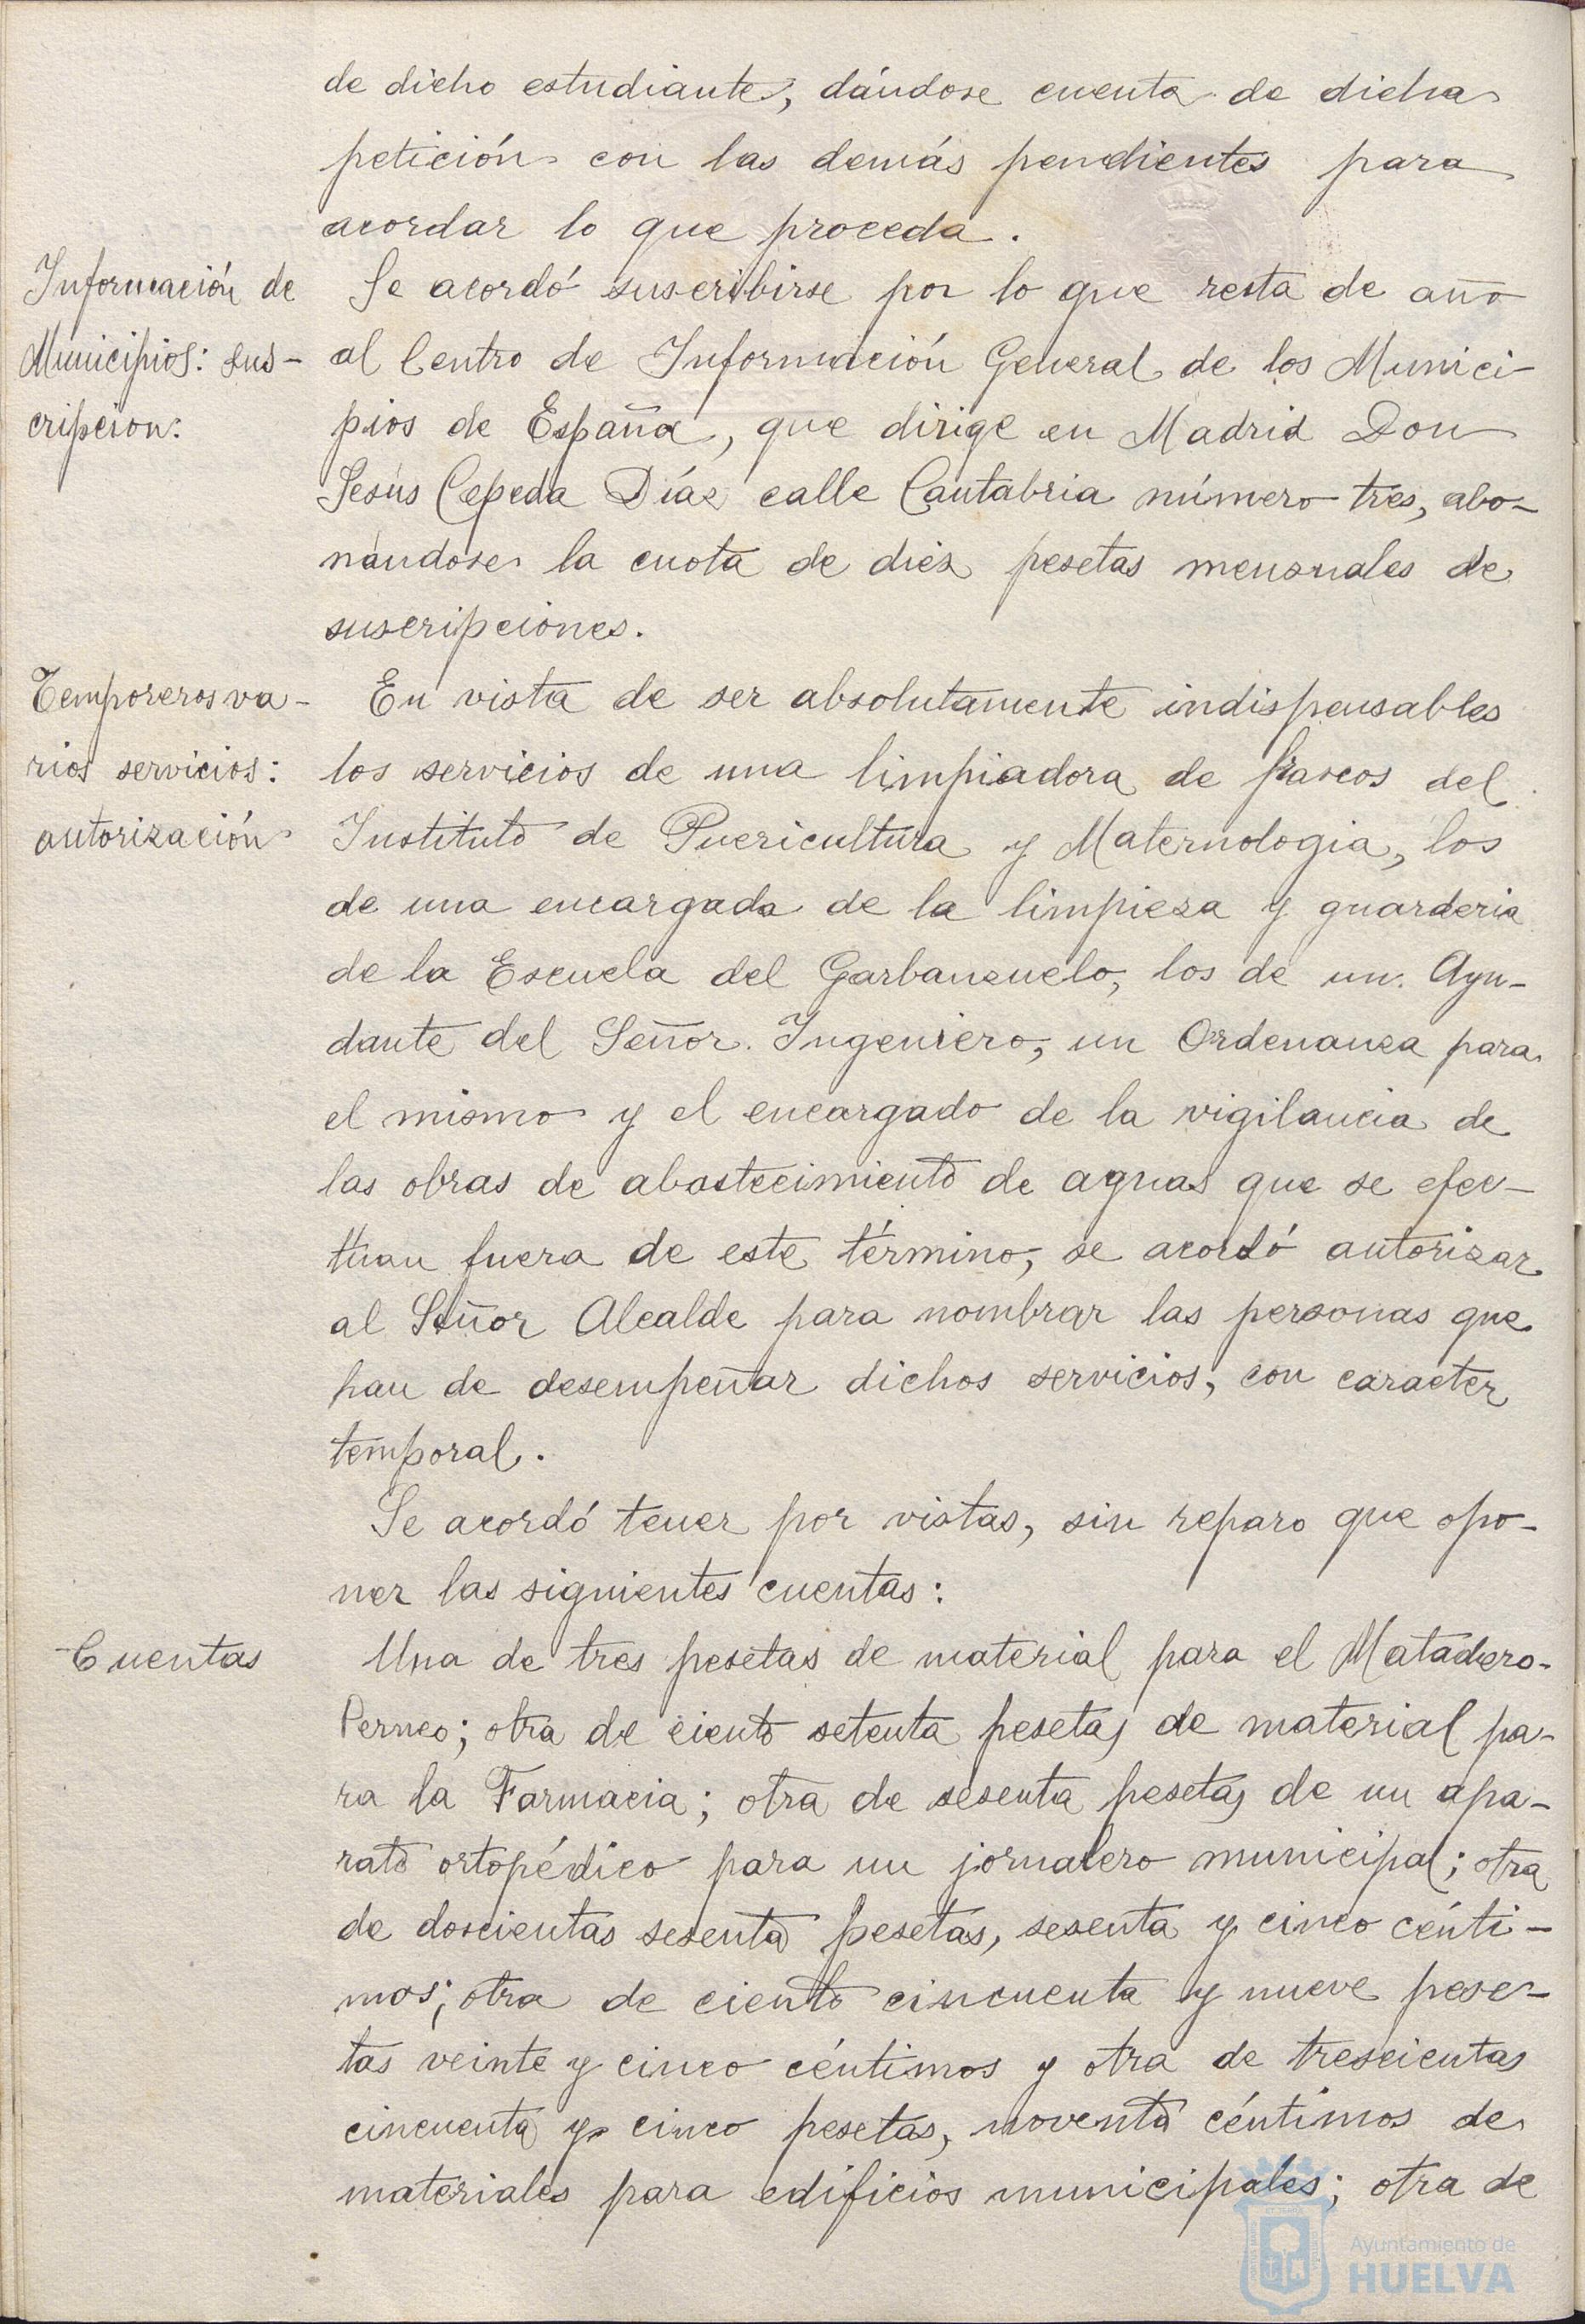 de dicho estudiante, dándose cuenta de dicha
petición con las demás pendientes para
acordar lo que proceda.
Información de
Municipios: sus-
cripcion:
Se acordó suscribirse por lo que resta de año
al Centro de Información General de los Munici-
pios de España, que dirige en Madrid Don
Jesús Cepeda Díaz calle Cantabria número tres, abo-
nándose la cuota de diez pesetas mensuales de
suscripciones.
Temporeros va-
rios servicios:
autorización
En vista de ser absolutamente indispensables
los servicios de una limpiadora de frascos del
Instituto de Puericultura y Maternologia, los
de una encargada de la limpieza y guarderia
de la Escuela del Garbanzuelo, los de un Ayu-
dante del Señor Ingeniero, un Ordenanza para
el mismo y el encargado de la vigilancia de
las obras de abastecimiento de aguas que se efec-
túan fuera de este término, se acordó autorizar
al Señor Alcalde para nombrar las personas que
han de desempeñar dichos servicios, con caracter
temporal.
Se acordó tener por vistas, sin reparo que opo-
ner las siguientes cuentas:
Cuentas
Una de tres pesetas de material para el Matadero-
Perneo; otra de ciento setenta pesetas de material pa-
ra la Farmacia; otra de sesenta pesetas de un apa-
rato ortopédico para un jornalero municipal; otra
de doscientas sesenta pesetas, sesenta y cinco cénti-
mos; otra de ciento cincuenta y nueve pese-
tas veinte y cinco céntimos y otra de trescientas
cincuenta y cinco pesetas, noventa céntimos de
materiales para edificios municipales; otra de
Ayuntamiento de
HUELVA